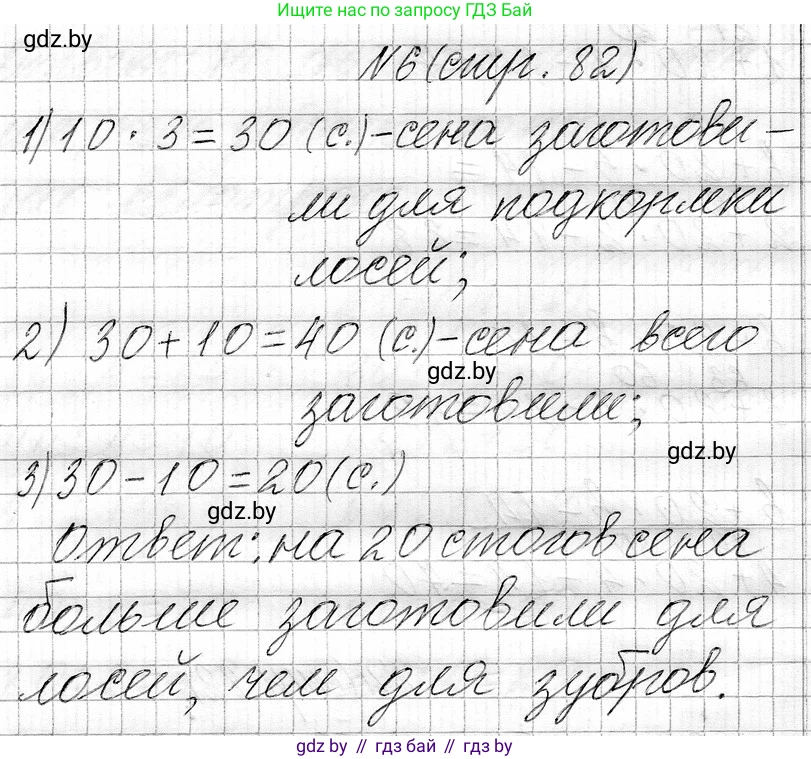 Ищите нас по запросу ГДЗ Бай
gdz.by
№6 (стр. 82)
1) 10 · 3 = 30 (с.) - сена заготови -
ли для подкормки
лосей;
2) 30 + 10 = 40 (с.) - сена всего
gdz.by
заготовили;
gdz.by
3) 30 - 10 = 20 (с.)
gdz.by
Ответ: на 20 стогов сена
больше заготовили для
лосей, чем для зубров.
gdz.by // гдз бай // gdz.by